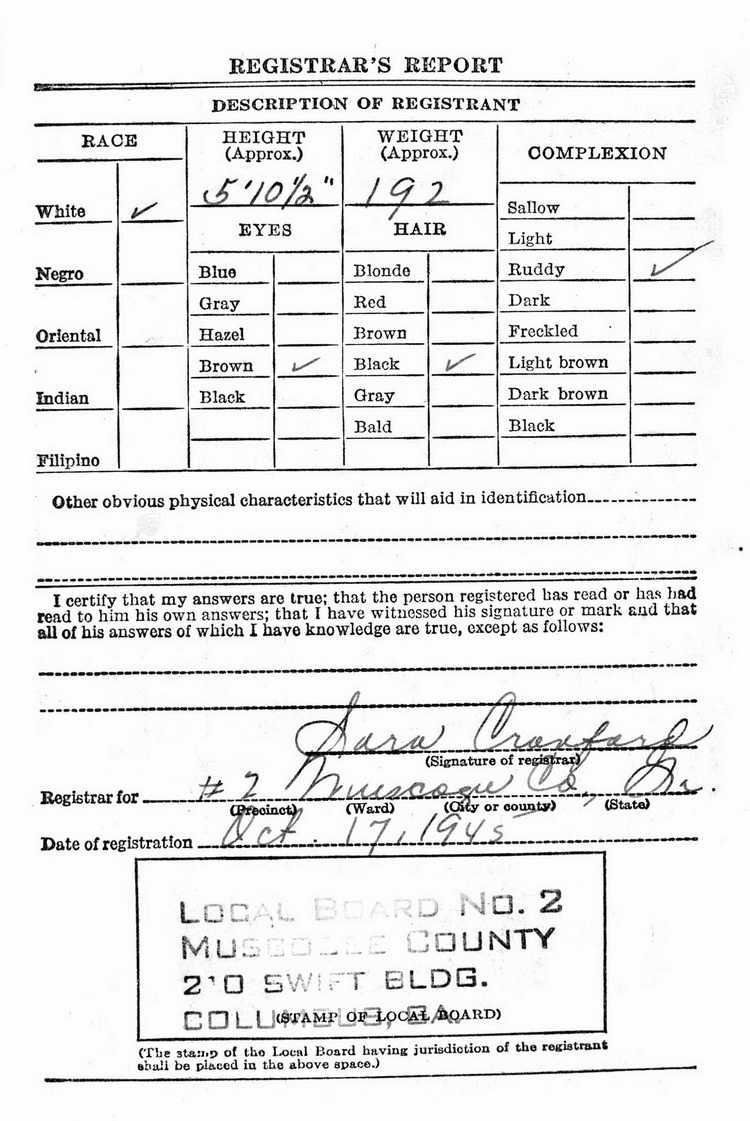 REGISTRAR'S REPORT
DESCRIPTION OF REGISTRANT
RACE HEIGHT (Approx.) WEIGHT (Approx.) COMPLEXION
5'10½" 192
White ✓
EYES HAIR
Sallow
Light
Negro Blue Blonde Ruddy ✓
Gray Red Dark
Oriental Hazel Brown Freckled
Brown ✓ Black ✓ Light brown
Indian Black Gray Dark brown
Bald Black
Filipino
Other obvious physical characteristics that will aid in identification
I certify that my answers are true; that the person registered has read or has had
read to him his own answers; that I have witnessed his signature or mark and that
all of his answers of which I have knowledge are true, except as follows:
Sara Crawford
(Signature of registrar)
Registrar for # 2 Muscogee Co, Ga.
(Precinct) (Ward) (City or county) (State)
Date of registration Oct. 17, 1945
LOCAL BOARD NO. 2
MUSCOGEE COUNTY
210 SWIFT BLDG.
COLUMBUS, GA.
(STAMP OF LOCAL BOARD)
(The stamp of the Local Board having jurisdiction of the registrant
shall be placed in the above space.)